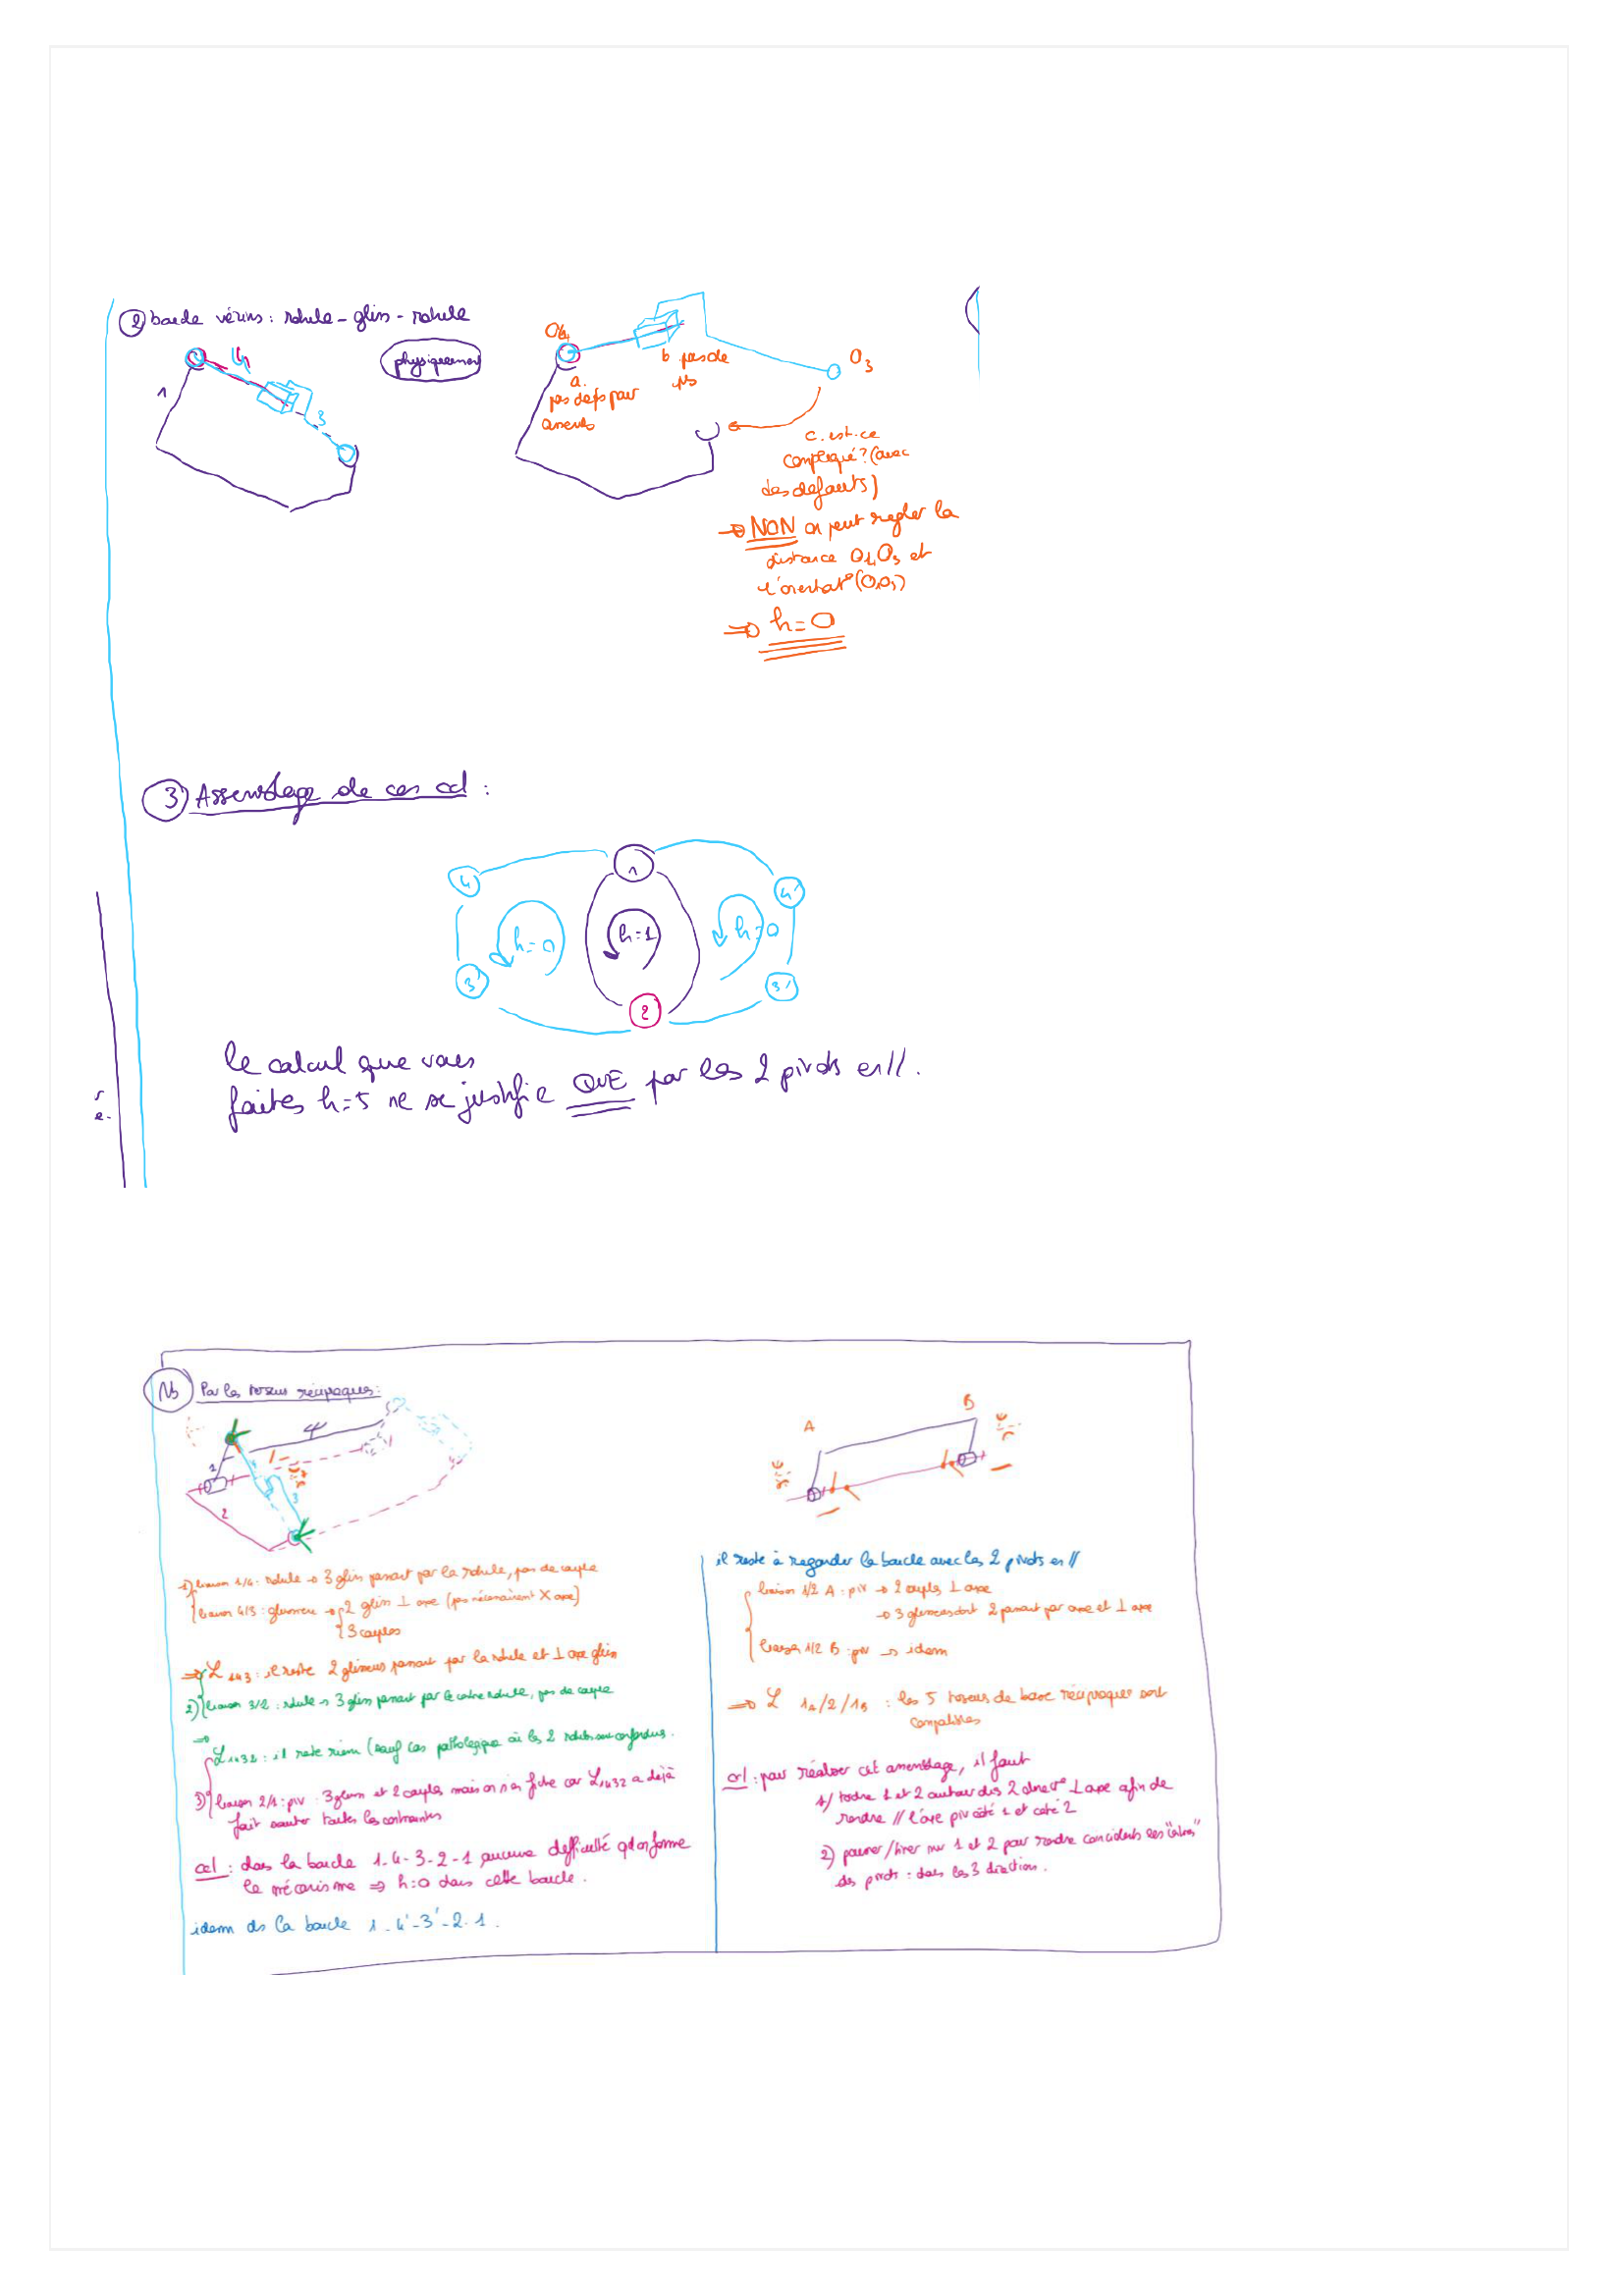 ② boucle vérins : rotule - gliss - rotule
physiquement
1
4
3
O4
a.
pas de pb pour
b pas de
pb
O3
c. est-ce
compliqué ? (avec
des défauts)
→ NON on peut regler la
distance O4O3 et
l'orientat° (O4O3)
⇒ h=0
③ Assemblage de ces cd :
1
4
4'
h=0
h=1
h=0
3'
3'
2
le calcul que vous
faites h=5 ne se justifie QUE par les 2 pivots en //.
Nb Par les torseurs réciproques :
1
2
3
4
A
B
1) liaison 1/4 : rotule → 3 gliss passant par la rotule, pas de couple
liaison 4/3 : glissière → 2 gliss ⊥ axe (pas nécessairement X axe)
3 couples
⇒ L 143 : il reste 2 glisseurs passant par la rotule et ⊥ axe gliss
2) liaison 3/2 : rotule → 3 gliss passant par le centre rotule, pas de couple
⇒ L 1432 : il reste rien (sauf cas pathologique où les 2 rotules sont confondus.
3) liaison 2/1 : piv . 3 gliss et 2 couples mais on s'en fiche car L1432 a déjà
fait sauter toutes les contraintes
ccl : dans la boucle 1-4-3-2-1 aucune difficulté qd on ferme
le mécanisme ⇒ h=0 dans cette boucle.
idem ds la boucle 1-4'-3'-2-1.
il reste à regarder la boucle avec les 2 pivots en //
liaison 1/2 A : piv → 2 couples ⊥ axe
→ 3 glisseurs dont 2 passant par axe et ⊥ axe
liaison 1/2 B : piv → idem
⇒ L 1A/2/1B : les 5 torseurs de base réciproques sont
compatibles
ccl : pour réaliser cet assemblage, il faut
1/ tordre 1 et 2 autour des 2 direct° ⊥ axe afin de
rendre // l'axe piv côté 1 et coté 2
2) pousser/tirer sur 1 et 2 pour rendre coincidents les "centres"
des pivots : dans les 3 direction.